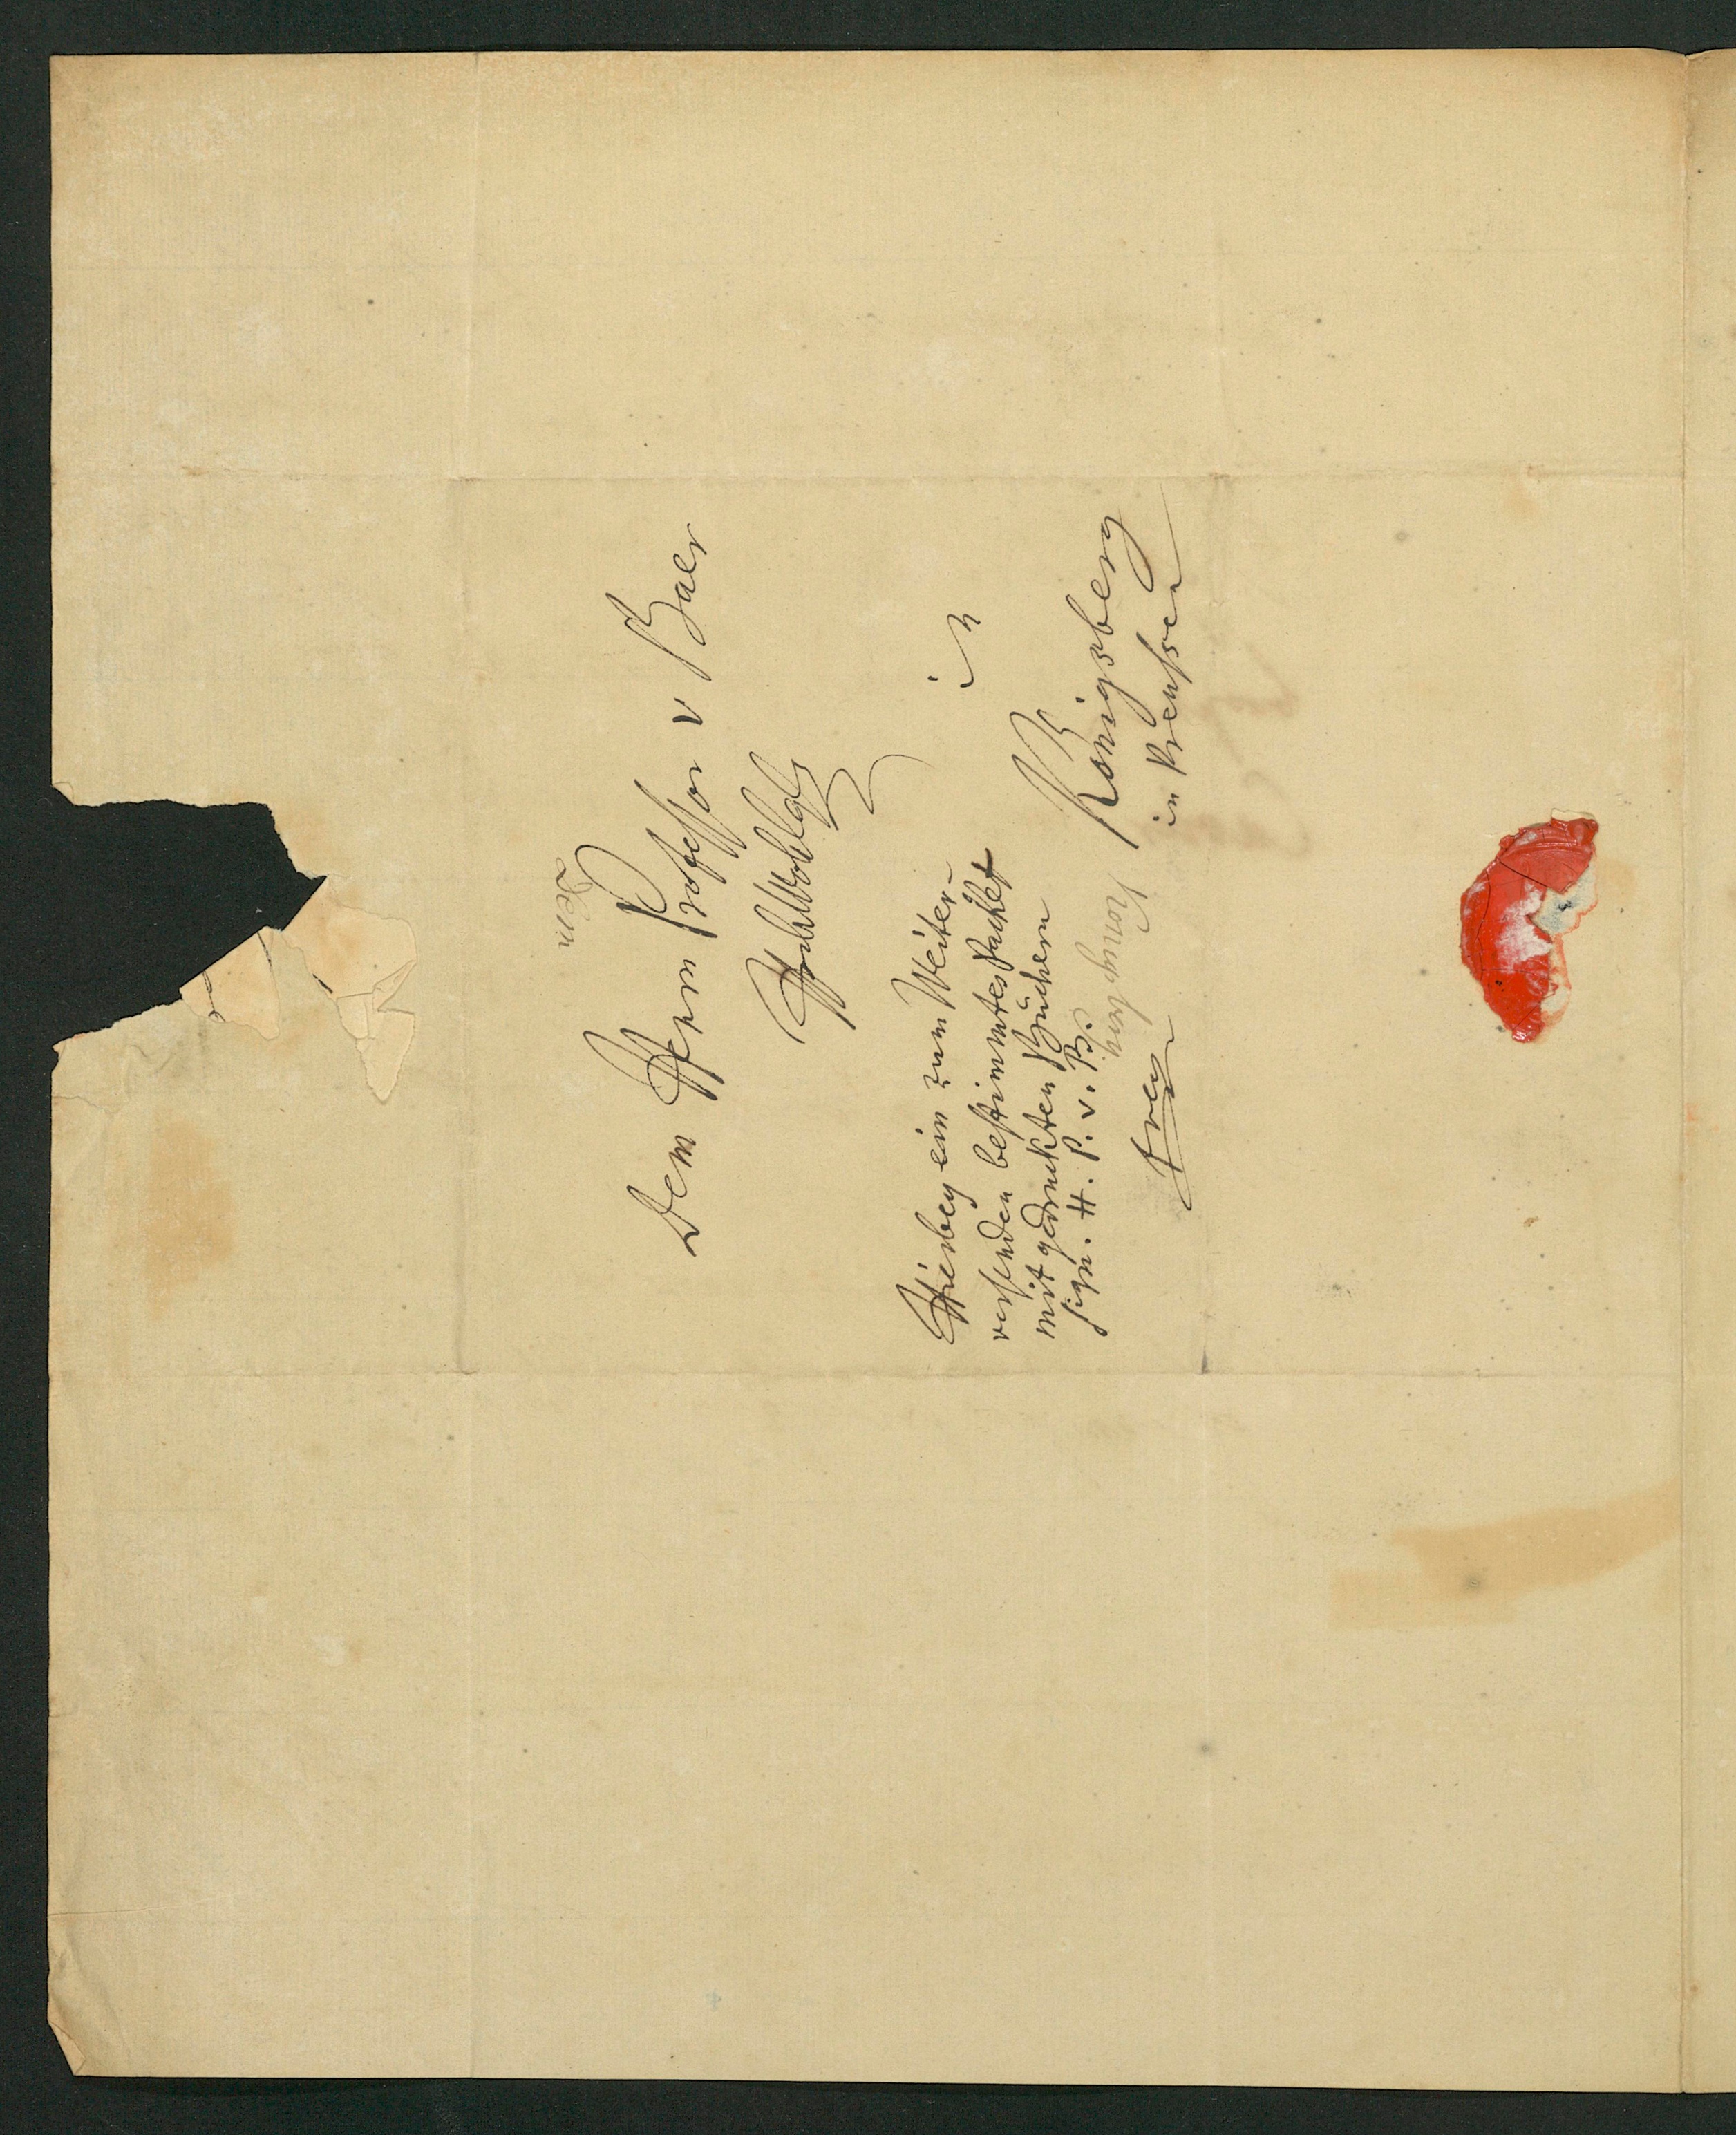 Dem Herrn Professor v Baer
HochWohlgb
in
Königsberg
in Preußen
Hierbey ein zum Weiter-
versenden bestimmtes Packet
mit gedruckten Büchern
sign. H. P. v. B.
frey
Dem